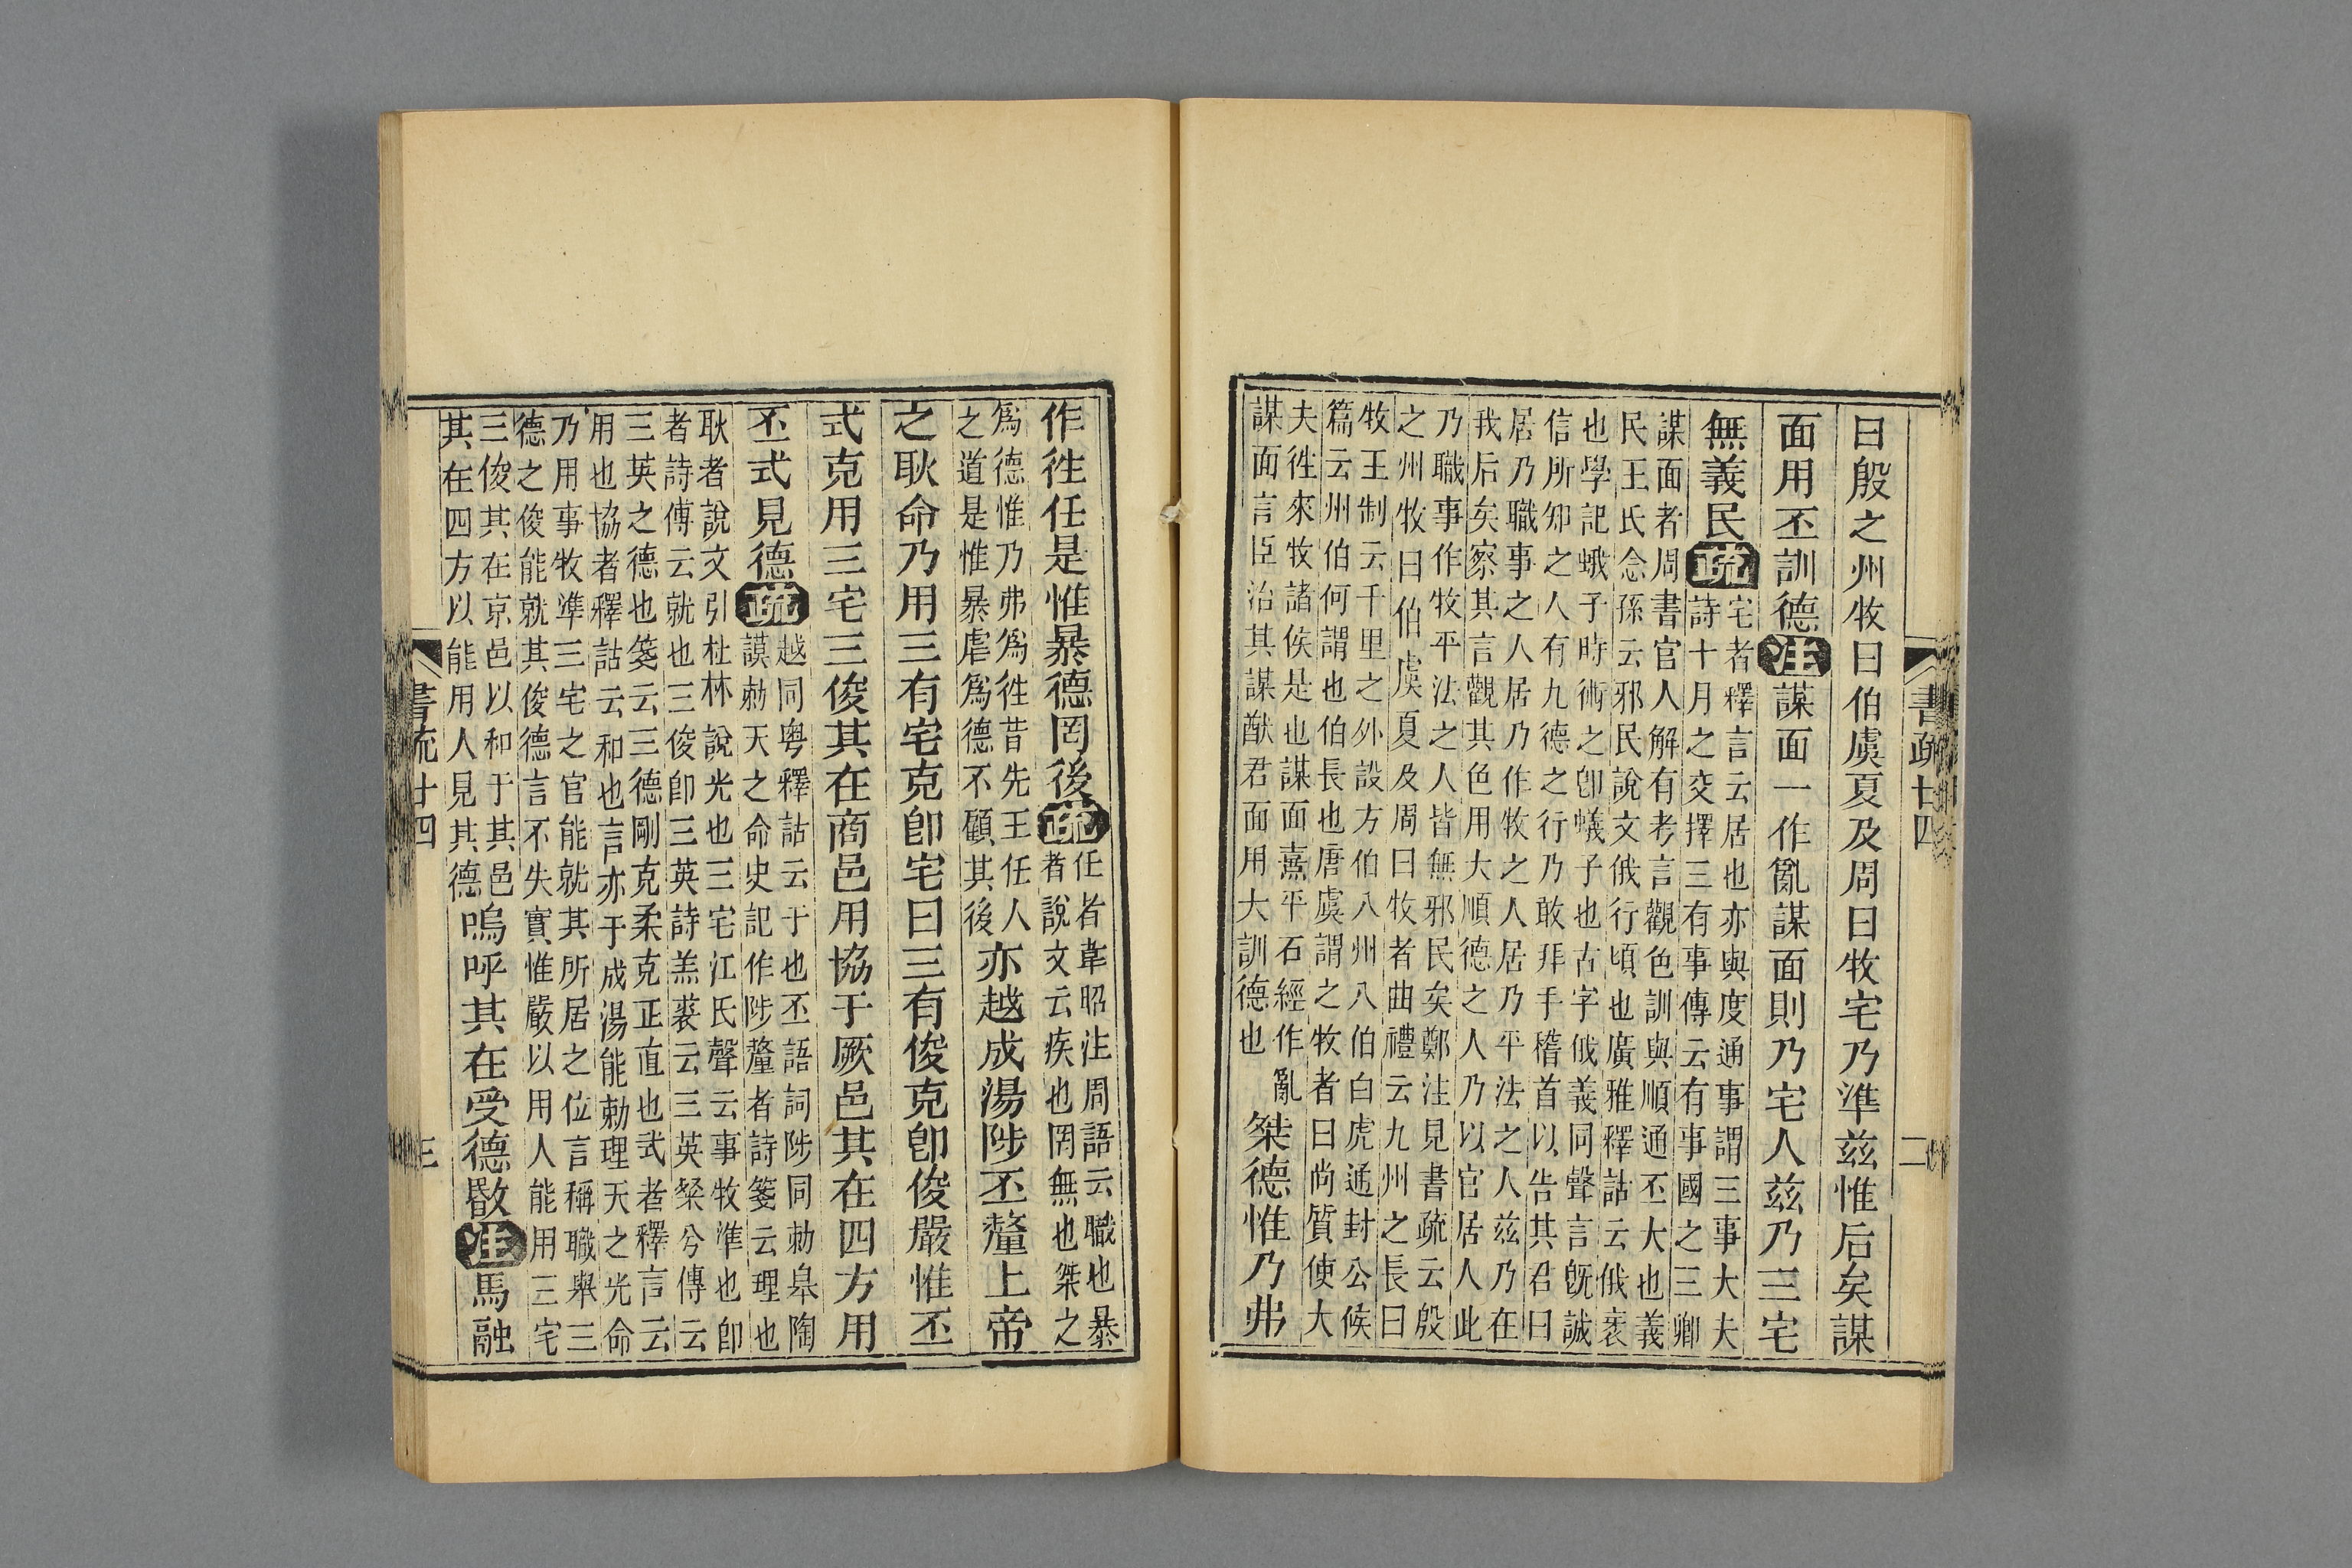 書疏廿四
二
曰殷之州牧曰伯虞夏及周曰牧宅乃準兹惟后矣謀
面用丕訓德注謀面一作亂謀面則乃宅人兹乃三宅
無義民疏宅者釋言云居也亦與度通事謂三事大夫
詩十月之交擇三有事傳云有事國之三卿
謀面者周書官人解有考言觀色訓與順通丕大也義
民王氏念孫云邪民說文俄行頃也廣雅釋詁云俄衺
也學記蛾子時術之卽蟻子也古字俄義同聲言旣誠
信所知之人有九德之行乃敢拜手稽首以告其君曰
居乃職事之人居乃作牧之人居乃平法之人兹乃在
我后矣察其言觀其色用大順德之人乃以官居人此
乃職事作牧平法之人皆無邪民矣鄭注見書疏云殷
之州牧曰伯虞夏及周曰牧者曲禮云九州之長曰
牧王制云千里之外設方伯八州八伯白虎通封公侯
篇云州伯何謂也伯長也唐虞謂之牧者曰尚質使大
夫徃來牧諸侯是也謀面熹平石經作亂
謀面言臣治其謀猷君面用大訓德也
桀德惟乃弗
作徃任是惟暴德罔後疏任者韋昭注周語云職也暴
者說文云疾也罔無也桀之
爲德惟乃弗爲徃昔先王任人
之道是惟暴虐爲德不顧其後
亦越成湯陟丕釐上帝
之耿命乃用三有宅克卽宅曰三有俊克卽俊嚴惟丕
式克用三宅三俊其在商邑用協于厥邑其在四方用
丕式見德疏越同粤釋詁云于也丕語詞陟同勑皋陶
謨勑天之命史記作陟釐者詩箋云理也
耿者說文引杜林說光也三宅江氏聲云事牧準也卽
者詩傳云就也三俊卽三英詩羔裘云三英粲兮傳云
三英之德也箋云三德剛克柔克正直也式者釋言云
用也協者釋詁云和也言亦于成湯能勑理天之光命
乃用事牧準三宅之官能就其所居之位言稱職舉三
德之俊能就其俊德言不失實惟嚴以用人能用三宅
三俊其在京邑以和于其邑
其在四方以能用人見其德
嗚呼其在受德暋注馬融
書疏廿四
三